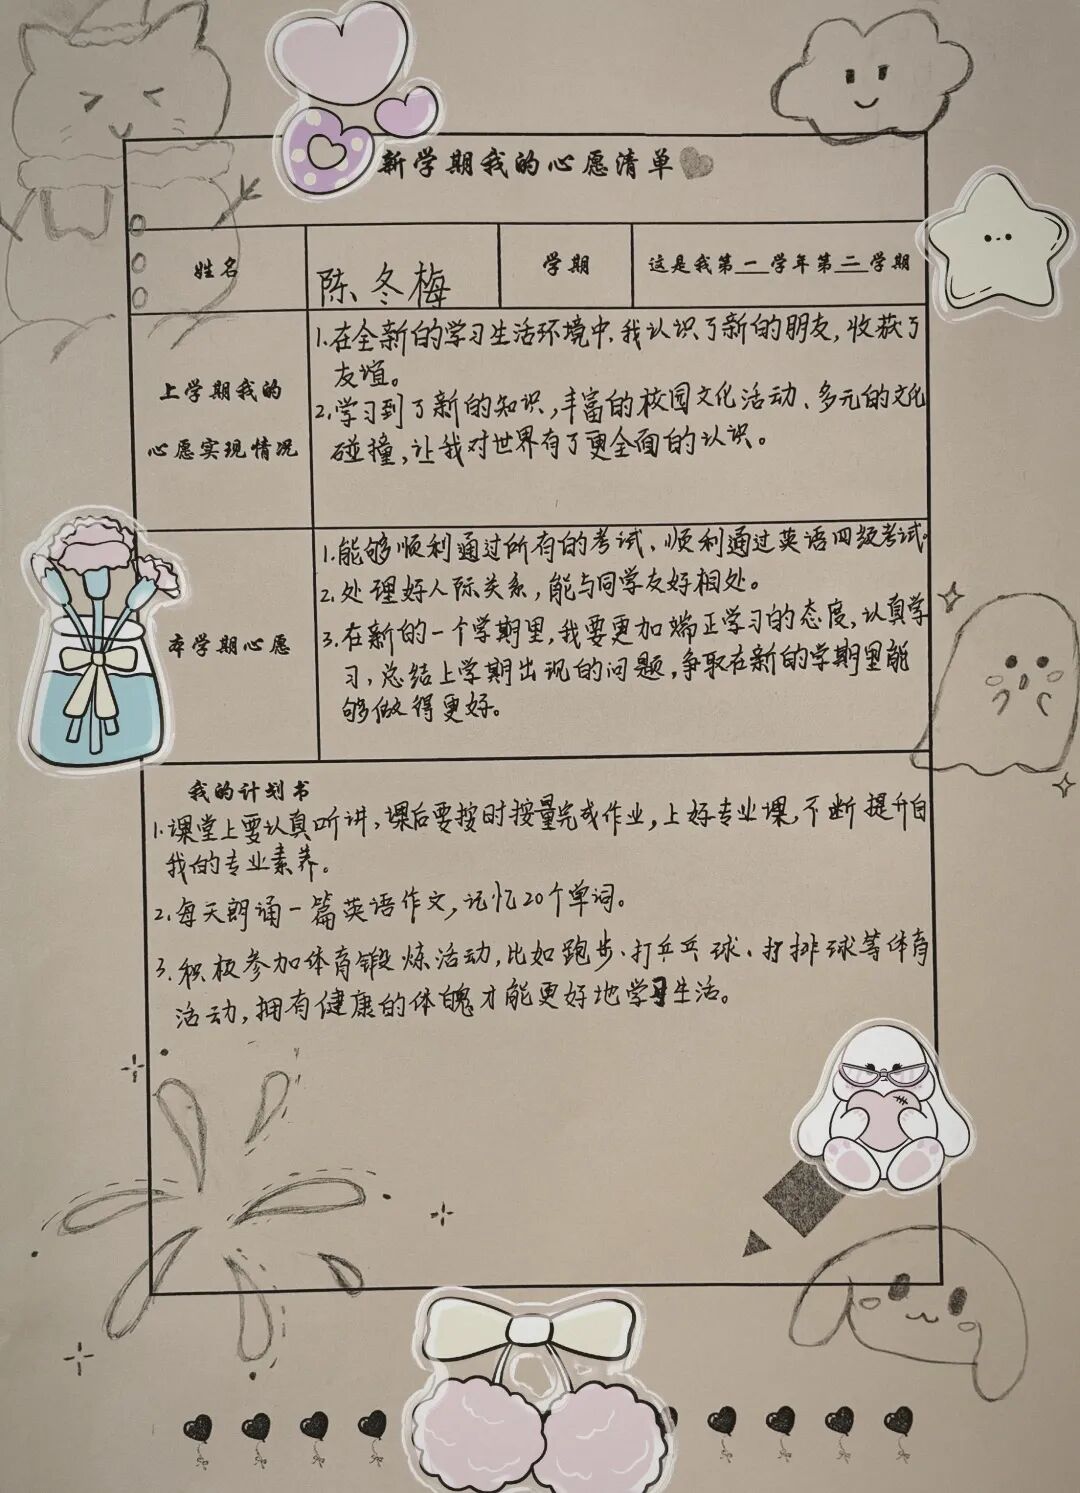 新学期我的心愿清单
姓名
陈冬梅
学期
这是我第一学年第二学期
上学期我的
心愿实现情况
1.在全新的学习生活环境中,我认识了新的朋友,收获了
友谊。
2.学习到了新的知识,丰富的校园文化活动、多元的文化
碰撞,让我对世界有了更全面的认识。
本学期心愿
1.能够顺利通过所有的考试、顺利通过英语四级考试。
2.处理好人际关系,能与同学友好相处。
3.在新的一个学期里,我要更加端正学习的态度,认真学
习,总结上学期出现的问题,争取在新的学期里能
够做得更好。
我的计划书
1.课堂上要认真听讲,课后要按时按量完成作业,上好专业课,不断提升自
我的专业素养。
2.每天朗诵一篇英语作文,记忆20个单词。
3.积极参加体育锻炼活动,比如跑步、打乒乓球、打排球等体育
活动,拥有健康的体魄才能更好地学习生活。